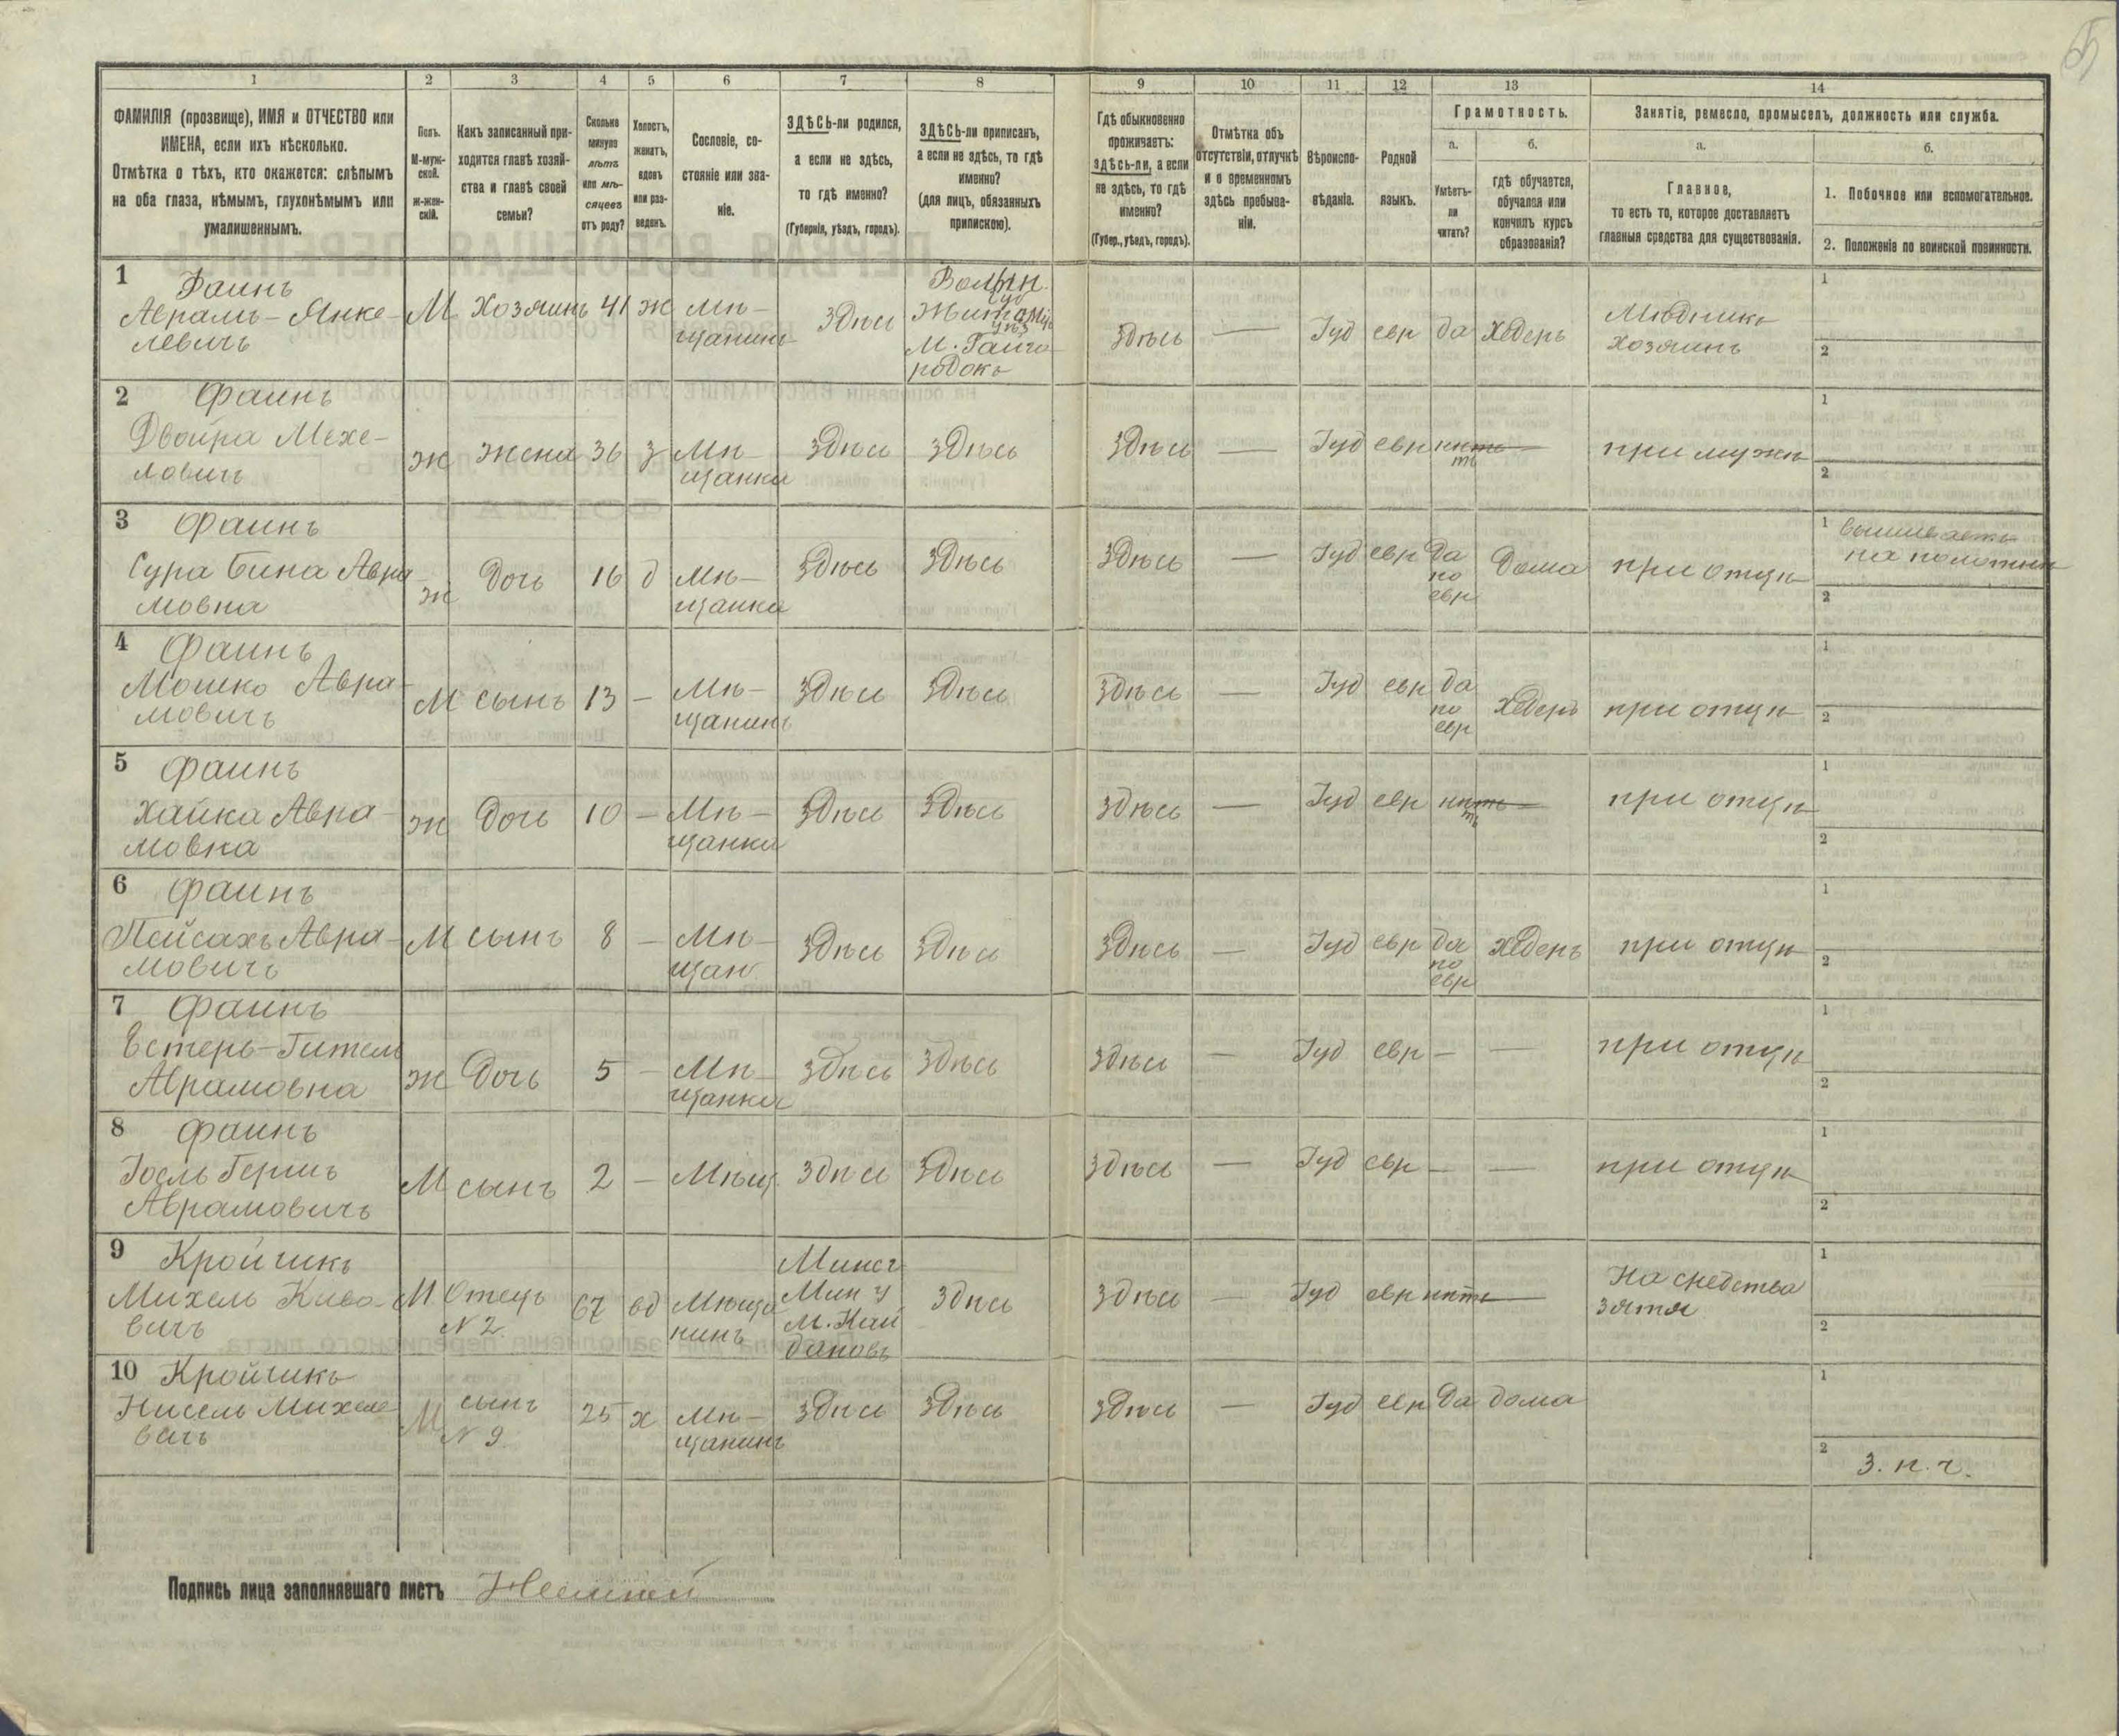 55
1 2 3 4 5 6 7 8 9 10 11 12 13 14
ФАМИЛІЯ (прозвище), ИМЯ и ОТЧЕСТВО или
ИМЕНА, если ихъ нѣсколько.
Отмѣтка о тѣхъ, кто окажется: слѣпымъ
на оба глаза, нѣмымъ, глухонѣмымъ или
умалишеннымъ.
Полъ.
М-муж-
ской.
Ж-жен-
скій.
Какъ записанный при-
ходится главѣ хозяй-
ства и главѣ своей
семьи?
Сколько
минуло
лѣтъ
или мѣ-
сяцевъ
отъ роду?
Холостъ,
женатъ,
вдовъ
или раз-
веденъ.
Сословіе, со-
стояніе или зва-
ніе.
ЗДѢСЬ-ли родился,
а если не здѣсь,
то гдѣ именно?
(Губернія, уѣздъ, городъ).
ЗДѢСЬ-ли приписанъ,
а если не здѣсь, то гдѣ
именно?
(для лицъ, обязанныхъ
припискою).
Гдѣ обыкновенно
проживаетъ:
здѣсь-ли, а если
не здѣсь, то гдѣ
именно?
(Губер., уѣздъ, городъ).
Отмѣтка объ
отсутствіи, отлучкѣ
и о временномъ
здѣсь пребыва-
ніи.
Вѣроиспо-
вѣданіе.
Родной
языкъ.
Грамотность.
а.
Умѣетъ-
ли
читать?
б.
гдѣ обучается,
обучался или
кончилъ курсъ
образованія?
Занятіе, ремесло, промыселъ, должность или служба.
а.
Главное,
то есть то, которое доставляетъ
главныя средства для существованія.
б.
1. Побочное или вспомогательное.
2. Положеніе по воинской повинности.
1 Фаинъ
Аврамъ-Янке-
левичъ
М Хозяинъ 41 ж Мѣ-
щанинъ
Здѣсь
Волын.
губ
Житомир
уѣз
М. Райго-
родокъ
Здѣсь — Іуд евр да Хедеръ
Мѣдникъ
Хозяинъ
1
2
2 Фаинъ
Двойра Мехе-
ловичъ
ж жена 36 з Мѣ-
щанка
Здѣсь Здѣсь Здѣсь — Іуд евр нѣтъ — при мужѣ
1
2
3 Фаинъ
Сура Бина Авра-
мовна
ж Дочь 16 д Мѣ-
щанка
Здѣсь Здѣсь Здѣсь — Іуд евр да
по
евр
Дома при отцѣ
1 вышиваетъ
на полотнѣ
2
4 Фаинъ
Мошко Авра-
мовичъ
М сынъ 13 — Мѣ-
щанинъ
Здѣсь Здѣсь Здѣсь — Іуд евр да
по
евр
хедеръ при отцѣ
1
2
5 Фаинъ
Хайка Авра-
мовна
ж Дочь 10 — Мѣ-
щанка
Здѣсь Здѣсь Здѣсь — Іуд евр нѣтъ — при отцѣ
1
2
6 Фаинъ
Пейсахъ Авра-
мовичъ
М сынъ 8 — Мѣ-
щан
Здѣсь Здѣсь Здѣсь — Іуд евр да
по
евр
хедеръ при отцѣ
1
2
7 Фаинъ
Естеръ-Гитель
Аврамовна
ж Дочь 5 — Мѣ-
щанка
Здѣсь Здѣсь Здѣсь — Іуд евр — — при отцѣ
1
2
8 Фаинъ
Іосль Гершъ
Аврамовичъ
М сынъ 2 — Мѣщ Здѣсь Здѣсь Здѣсь — Іуд евр — — при отцѣ
1
2
9 Кройчикъ
Михель Киво-
вичъ
М Отецъ
N 2
67 вд Мѣща
нинъ
Минсг
Мин у
м. Кай
дановъ
Здѣсь Здѣсь — Іуд евр нѣтъ —
На средства
зятя
1
2
10 Кройчикъ
Нисель Михеле
вичъ
М сынъ
N 9
25 х Мѣ-
щанинъ
Здѣсь Здѣсь Здѣсь — Іуд евр да дома
1
2
З. п. ч.
Подпись лица заполнявшаго листъ